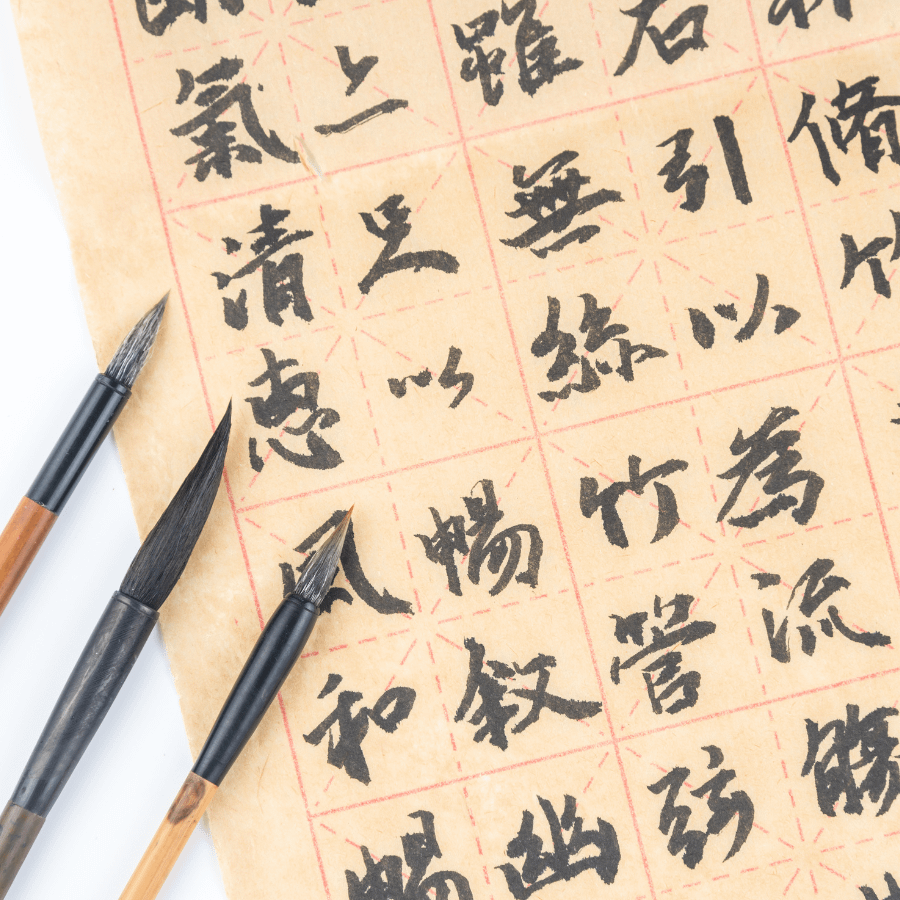 修竹
右引以為流觴
雖無絲竹管弦
足以暢叙幽
氣清惠風和暢